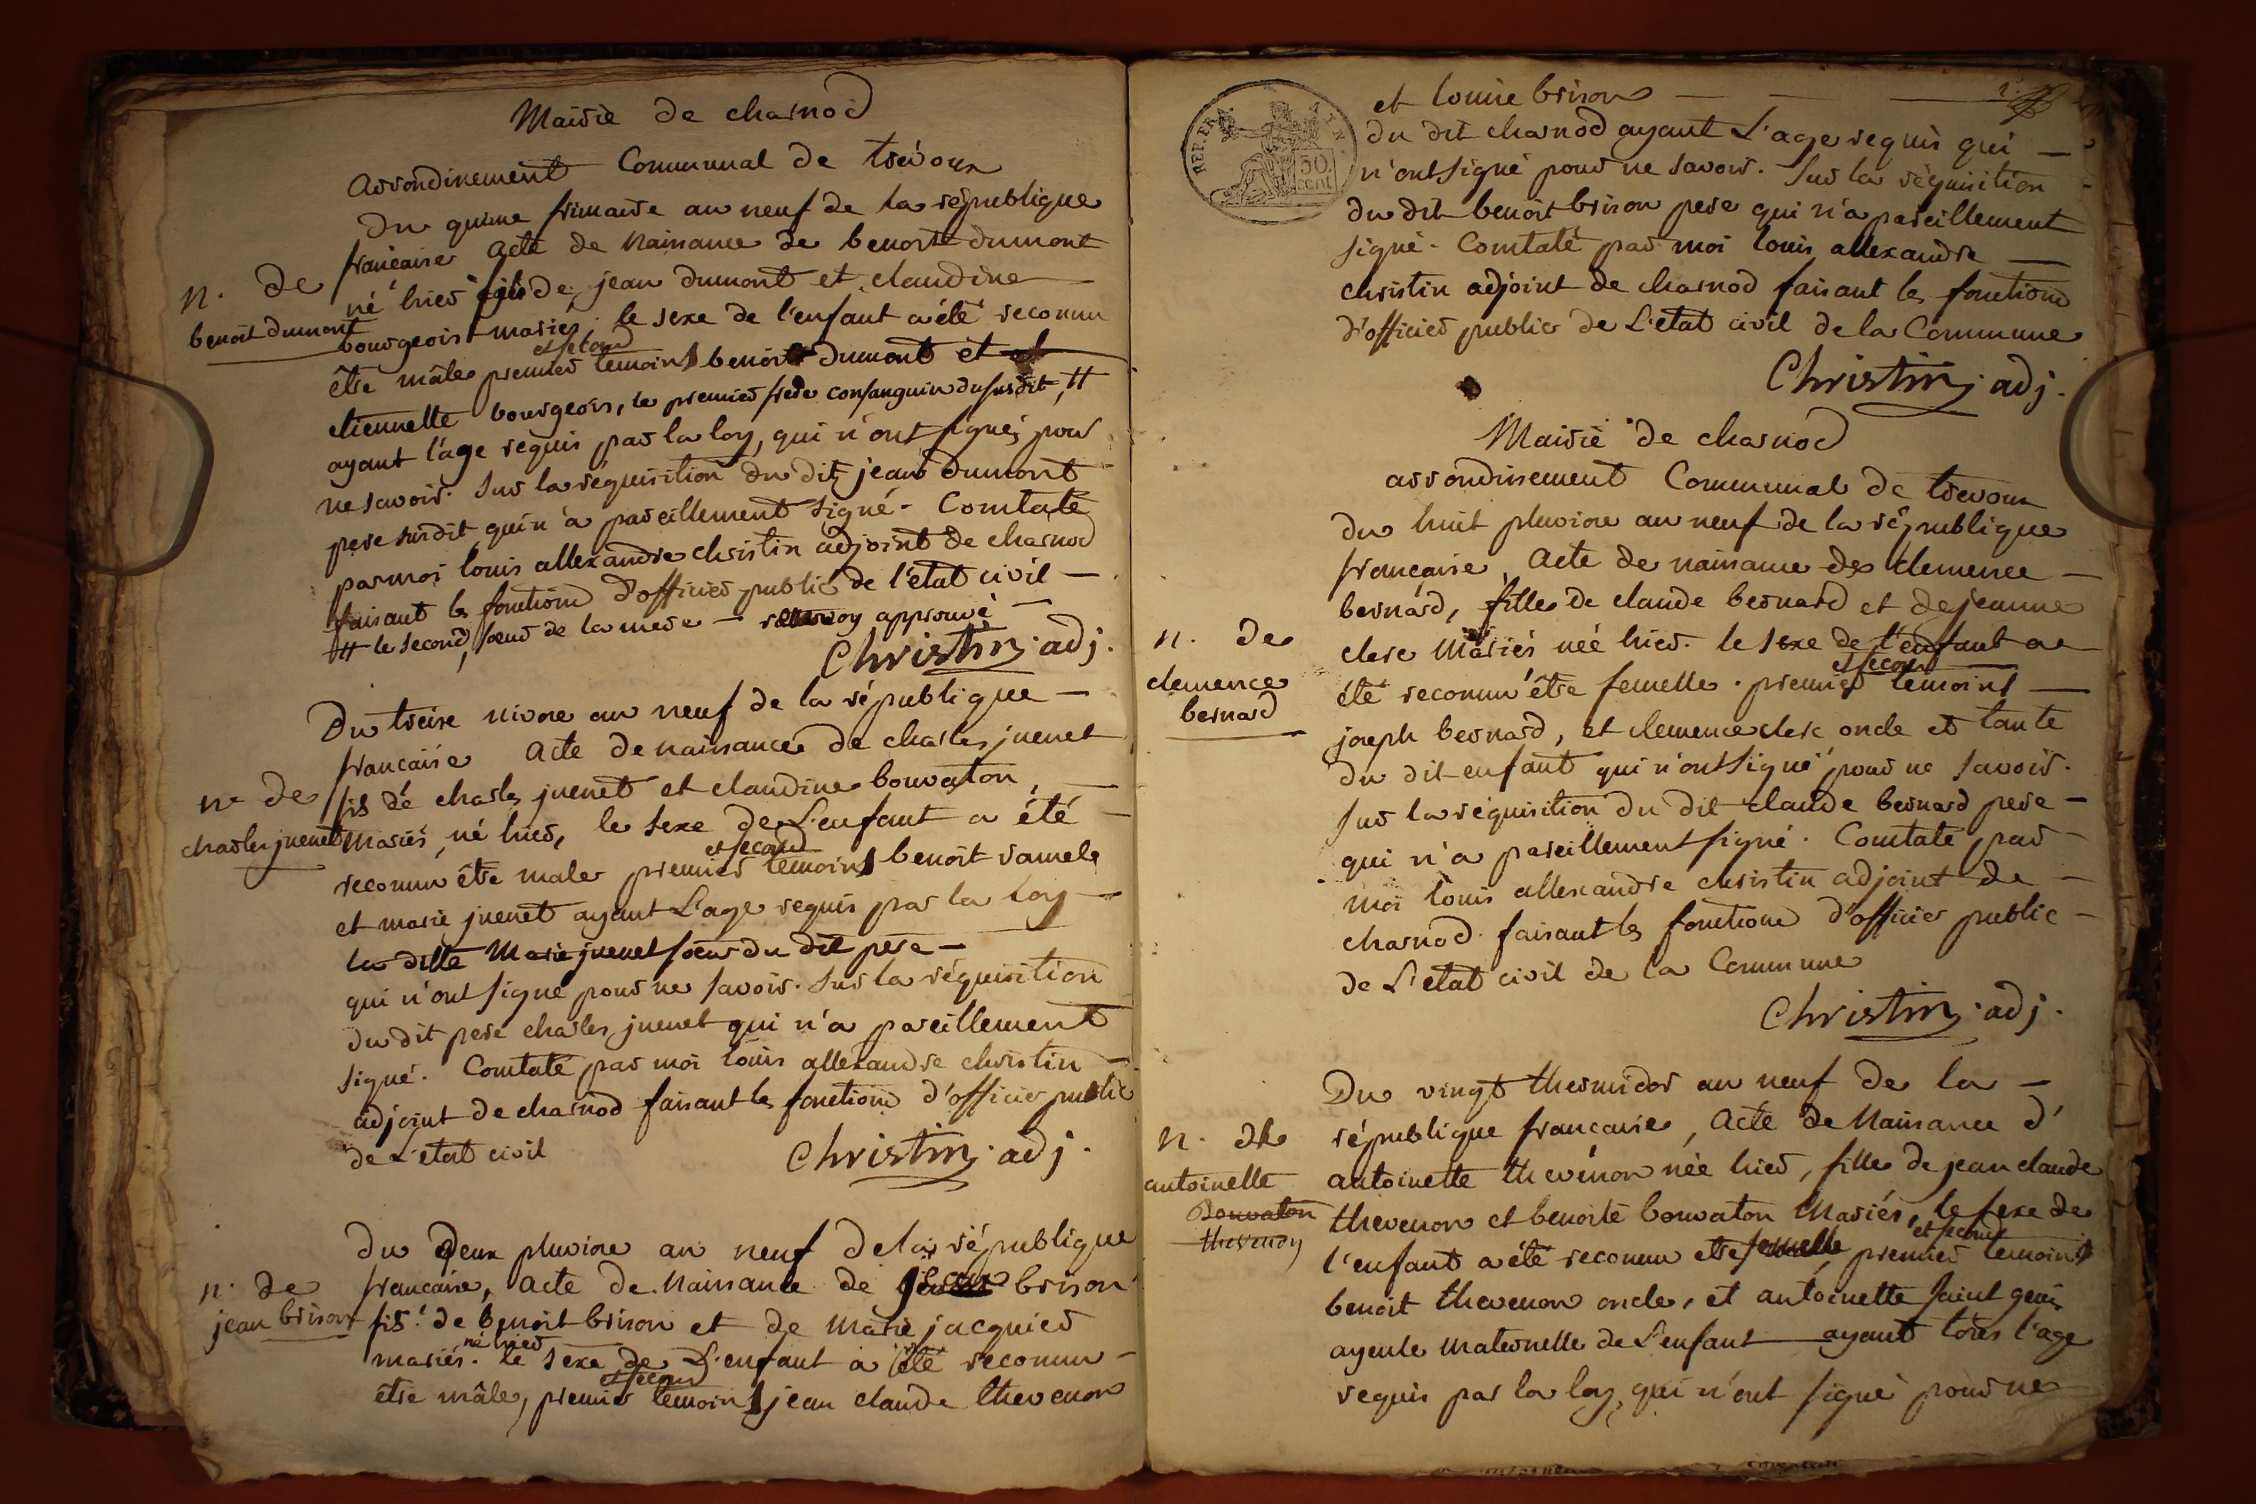 Mairie de charnod
arrondinement Communal de trévoux
Du quinze frimaire an neuf de la république
française acte de Naissance de benoit dumont
n. de
benoit dumont
né hier fils de jean dumont et claudine
bourgeois mariés. le sexe de l'enfant a été reconnu
et second
être mâle premier temoins benoit dumont et
etiennette bourgeois, le premier frere consanguin du susdit, #
ayant l'age requis par la loy, qui n'ont signés pour
ne savoir. sur la réquisition du dit jean dumont
pere susdit qui n'a pareillement signé. Constaté
par moi louis allexandre christin adjoint de charnod
faisant les fonctions d'officier public de l'état civil
# le second, sœur de la mere renvoy approuvé
Christin adj.
Du treize nivose an neuf de la république
française acte de naissance de charles juenet
n. de
charles juenet
fils de charles juenet et claudine bouvaton,
Mariés, né hier, le sexe de L'enfant a été
et second
reconnu être male premier temoins benoit ramele
et marie juenet ayant L'age requis par la loy
la ditte Marie juenet sœur du dit pere
qui n'ont signé pour ne savoir. sur la réquisition
du dit pere charles juenet qui n'a pareillement
signé. Constaté par moi louis allexandre christin
adjoint de charnod faisant les fonctions d'officier public
de L'état civil
Christin adj.
Du deux pluviose an neuf de la république
n. de
jean brison
française, acte de Naissance de jean brison
fils de benoit brison et de marie jacquier
né hier
mariés. le sexe de L'enfant a été reconnu
et second
être mâle, premier temoins jean claude thevenon
REP. FRA
50
cent
2.
et louise brison
du dit charnod ayant L'age requis qui
n'ont signé pour ne savoir. sur la réquisition
du dit benoit brison pere qui n'a pareillement
signé. Constaté par moi louis allexandre
christin adjoint de charnod faisant les fonctions
d'officier public de L'état civil de la Commune
Christin adj.
Mairie de charnod
arrondissement Communal de trevoux
du huit pluviose an neuf de la république
française, acte de naissance de clemence
n. de
clemence
bernard
bernard, fille de claude bernard et de jeanne
clerc Mariés née hier. le sexe de l'enfant a
et second
été reconnu être femelle. premier temoins
joseph bernard, et clemence clerc oncle et tante
du dit enfant qui n'ont signé pour ne savoir.
sur la réquisition du dit claude bernard pere
qui n'a pareillement signé. Constaté par
moi louis allexandre christin adjoint de
charnod faisant les fonctions d'officier public
de L'état civil de la Commune
Christin adj.
Du vingt thermidor an neuf de la
n. de
antoinette
bouvaton
thevenon
république française, acte de Naissance d'
antoinette thevenon née hier, fille de jean claude
thevenon et benoite bouvaton Mariés, le sexe de
et second
l'enfant a été reconnu etre femelle, premier temoins
benoit thevenon oncle, et antoinette saint genis
ayeule maternelle de L'enfant ayant tous l'age
requis par la loy, qui n'ont signé pour ne